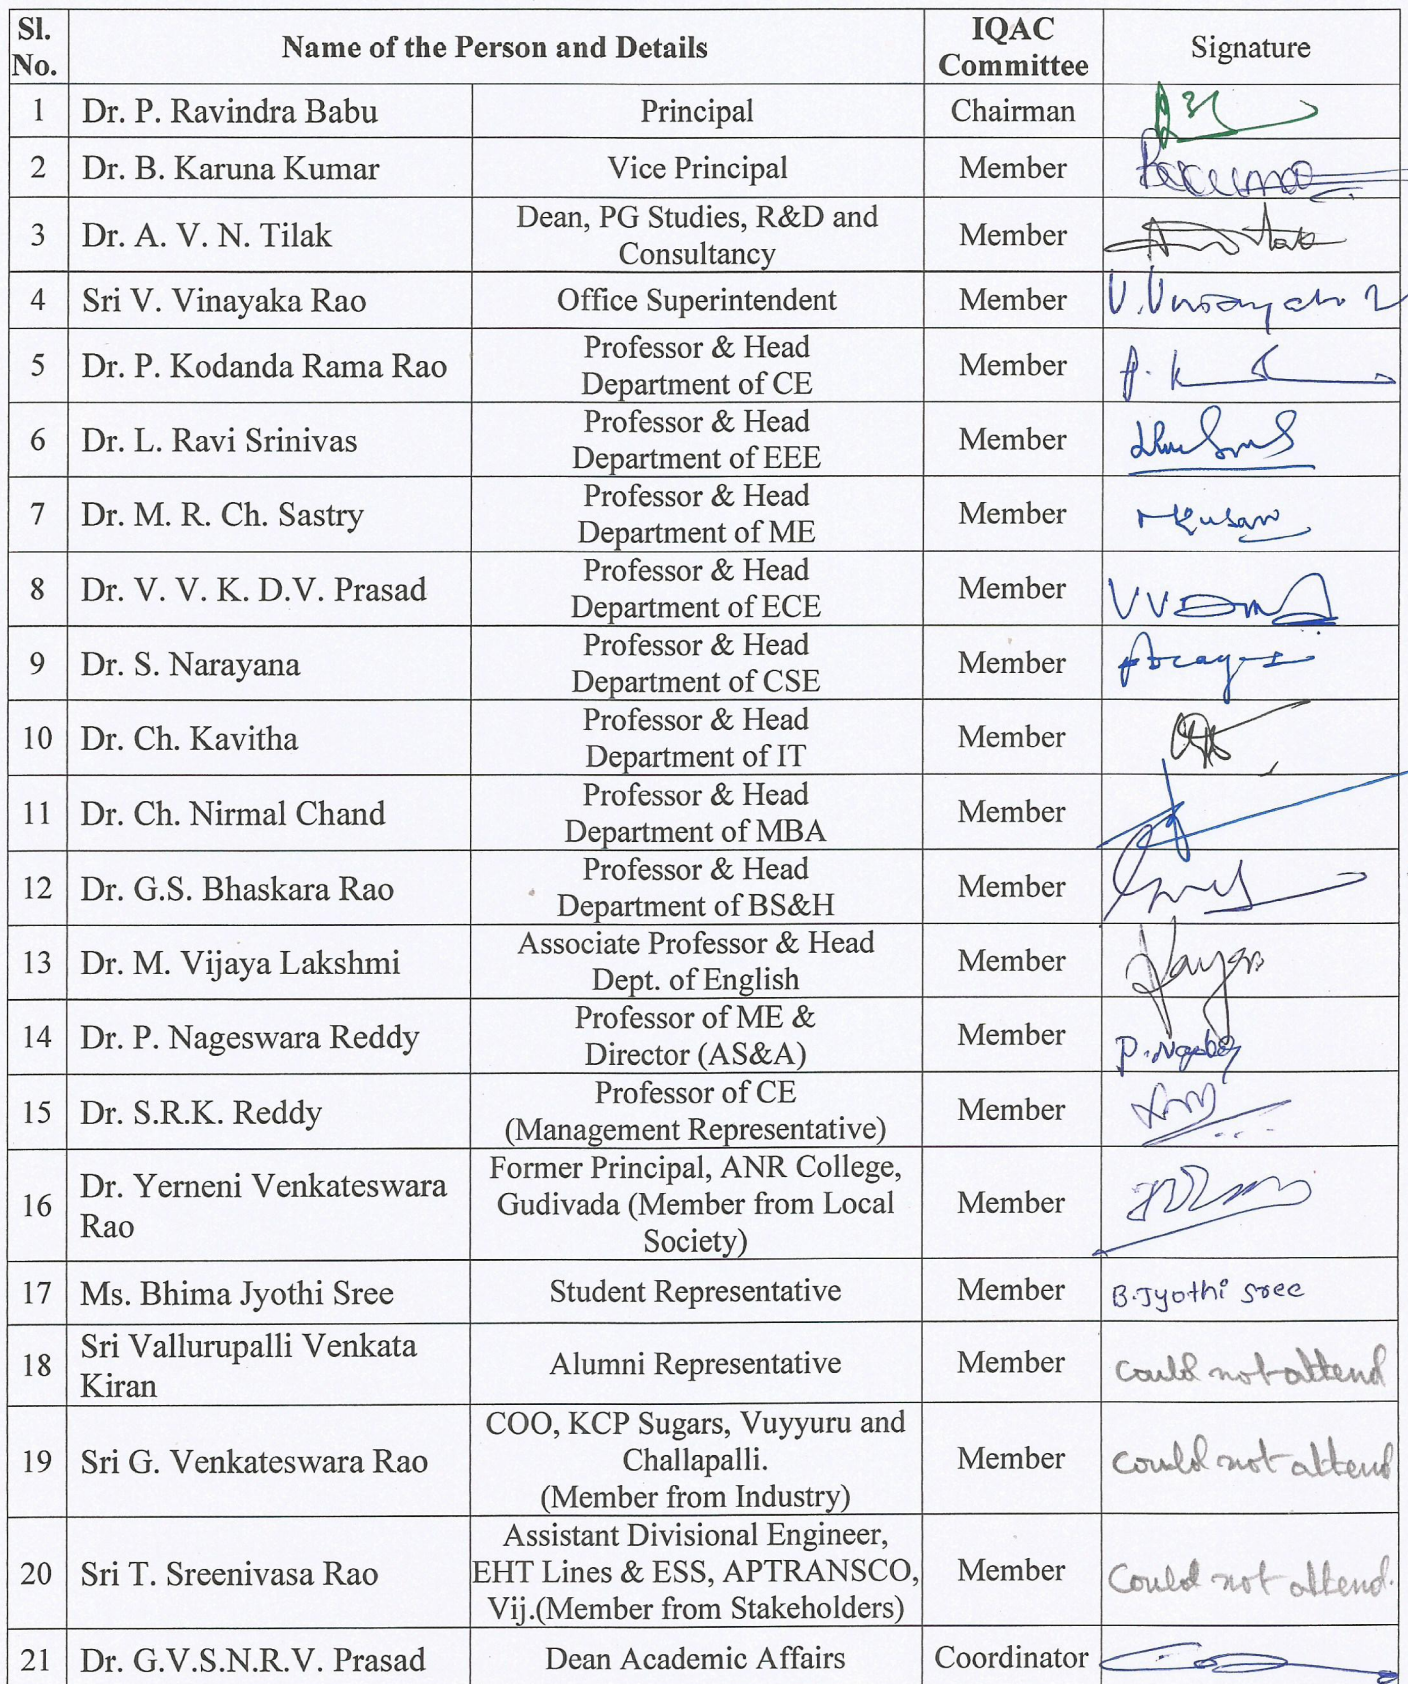 Sl. No. Name of the Person and Details IQAC Committee Signature
1 Dr. P. Ravindra Babu Principal Chairman
2 Dr. B. Karuna Kumar Vice Principal Member
3 Dr. A. V. N. Tilak Dean, PG Studies, R&D and
Consultancy Member
4 Sri V. Vinayaka Rao Office Superintendent Member
5 Dr. P. Kodanda Rama Rao Professor & Head
Department of CE Member
6 Dr. L. Ravi Srinivas Professor & Head
Department of EEE Member
7 Dr. M. R. Ch. Sastry Professor & Head
Department of ME Member
8 Dr. V. V. K. D.V. Prasad Professor & Head
Department of ECE Member
9 Dr. S. Narayana Professor & Head
Department of CSE Member
10 Dr. Ch. Kavitha Professor & Head
Department of IT Member
11 Dr. Ch. Nirmal Chand Professor & Head
Department of MBA Member
12 Dr. G.S. Bhaskara Rao Professor & Head
Department of BS&H Member
13 Dr. M. Vijaya Lakshmi Associate Professor & Head
Dept. of English Member
14 Dr. P. Nageswara Reddy Professor of ME &
Director (AS&A) Member
15 Dr. S.R.K. Reddy Professor of CE
(Management Representative) Member
16 Dr. Yerneni Venkateswara
Rao Former Principal, ANR College,
Gudivada (Member from Local
Society) Member
17 Ms. Bhima Jyothi Sree Student Representative Member B.Jyothi Sree
18 Sri Vallurupalli Venkata
Kiran Alumni Representative Member Could not attend
19 Sri G. Venkateswara Rao COO, KCP Sugars, Vuyyuru and
Challapalli.
(Member from Industry) Member Could not attend
20 Sri T. Sreenivasa Rao Assistant Divisional Engineer,
EHT Lines & ESS, APTRANSCO,
Vij.(Member from Stakeholders) Member Could not attend.
21 Dr. G.V.S.N.R.V. Prasad Dean Academic Affairs Coordinator